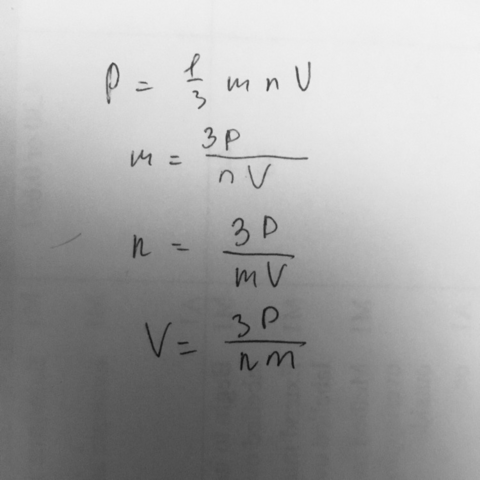 P = 1/3 m n V
m = 3P / n V
n = 3P / m V
V = 3P / n m